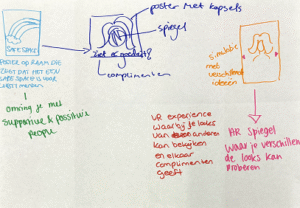 poster met kapsels
spiegel
SAFE SPACE
Ziet er goed uit!
complimenten
POSTER OP RAAM DIE
ZEGT DAT HET EEN
SAFE SPACE IS VOOR
omring je met
supportive & possitivie
people
met
verschillende
ideeën
VR experience
waar bij je looks
van anderen
kan bekijken
en elkaar
complimenten
geeft
AR Spiegel
waar je verschillen
de looks kan
proberen